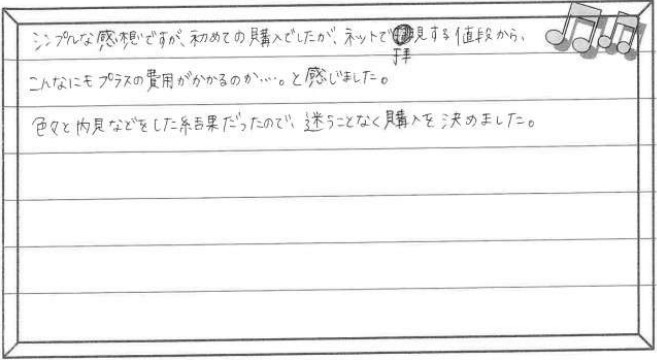 シンプルな感想ですが、初めての購入でしたが、ネットで拝見する値段から、
こんなにもプラスの費用がかかるのか…。と感じました。
色々と内見などをした結果だったので、迷うことなく購入を決めました。